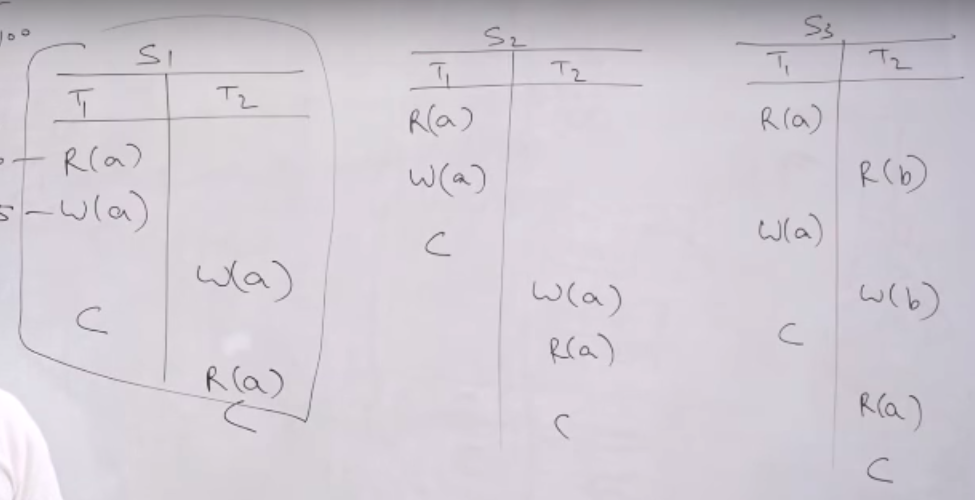 100
S1
T1 T2
R(a)
W(a)
W(a)
C
R(a)
C
S2
T1 T2
R(a)
W(a)
C
W(a)
R(a)
C
S3
T1 T2
R(a)
R(b)
W(a)
W(b)
C
R(a)
C